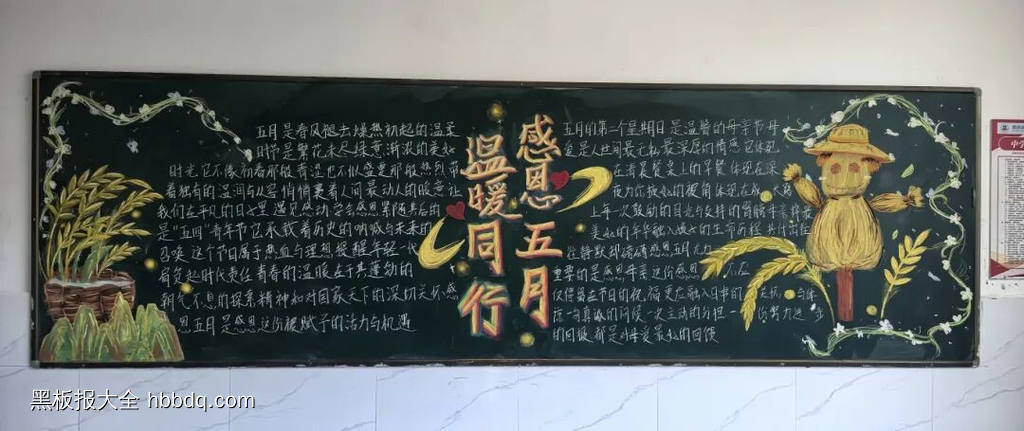 感恩五月
温暖同行
五月是春风褪去燥热初起的温柔
时节是繁花未尽绿意渐浓的美好
时光它不像初春那般青涩也不似盛夏那般热烈带
着独有的温润与从容悄悄裹着人间最动人的暖意让
我们在平凡的日子里遇见感动学会感恩紧随其后的
是“五四”青年节它承载着历史的呐喊与未来的
召唤 这个节日属于热血与理想提醒年轻一代
肩负起时代责任青春的温暖在于其蓬勃的
朝气不息的探索精神和对国家天下的深切关怀感
恩五月是感恩这份被赋予的活力与机遇
五月的第二个星期日是温馨的母亲节母
爱是人世间最无私最深厚的情感它体现
在清晨餐桌上的早餐体现在深
夜
上每一次鼓励的目光与支持的
美好的年华融入
往静默却磅礴感恩五月尤为
重要的是感恩母亲这份感恩 不应
仅停留在节日的祝福更应融入日常的
在一句真诚的问候一次主动的分担一 你努力
的回报都是对母爱最好的回馈
黑板报大全 hbbdq.com